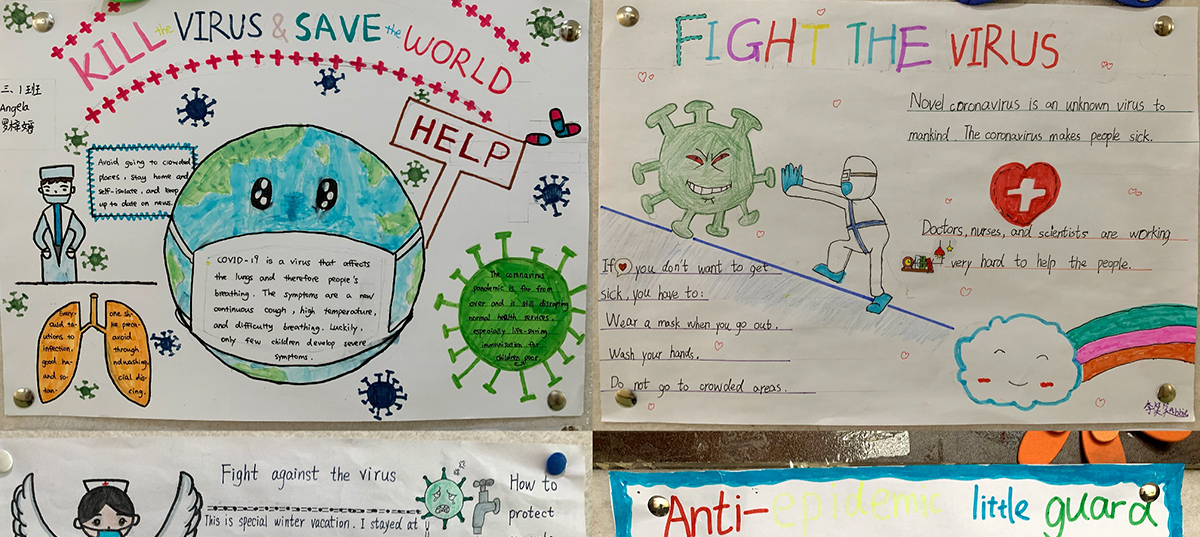 KILL the VIRUS & SAVE the WORLD
三、1班
Angela
HELP
Avoid going to crowded
places, stay home and
self-isolate, and keep
up to date on news.
COVID-19 is a virus that affects
the lungs and therefore people's
breathing. The symptoms are a new
continuous cough, high temperature,
and difficulty breathing. Luckily,
only few children develop severe
symptoms.
Every-
one sh-
ould ta-
ke preca-
utions to
avoid
infection,
through
good ha-
ndwashing,
and so-
cial dis-
tan-
cing.
The coronavirus
pandemic is far from
over and is still disrupting
normal health services,
especially life-saving
immunisation for
children poor.
FIGHT THE VIRUS
Novel coronavirus is an unknown virus to
mankind. The coronavirus makes people sick.
Doctors, nurses, and scientists are working
very hard to help the people.
If you don't want to get
sick, you have to:
Wear a mask when you go out.
Wash your hands.
Do not go to crowded areas.
Fight against the virus
This is special winter vacation. I stayed at
How to
protect
Anti-epidemic little guard